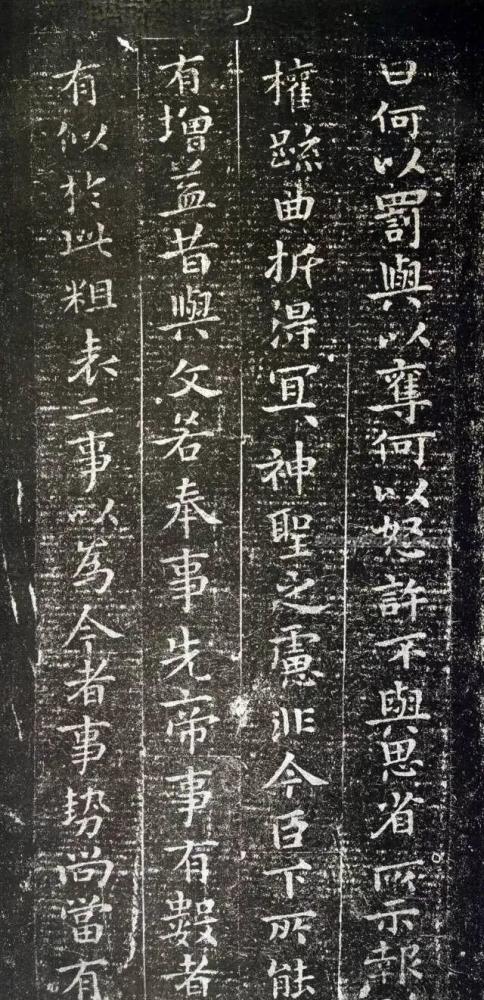 曰何以罰與以奪何以怒許不與思省所示報
權疏曲折得冝〻神聖之慮非今臣下所能
有增益昔與文若奉事先帝事有數者
有似於此粗表二事以為今者事勢尚當有